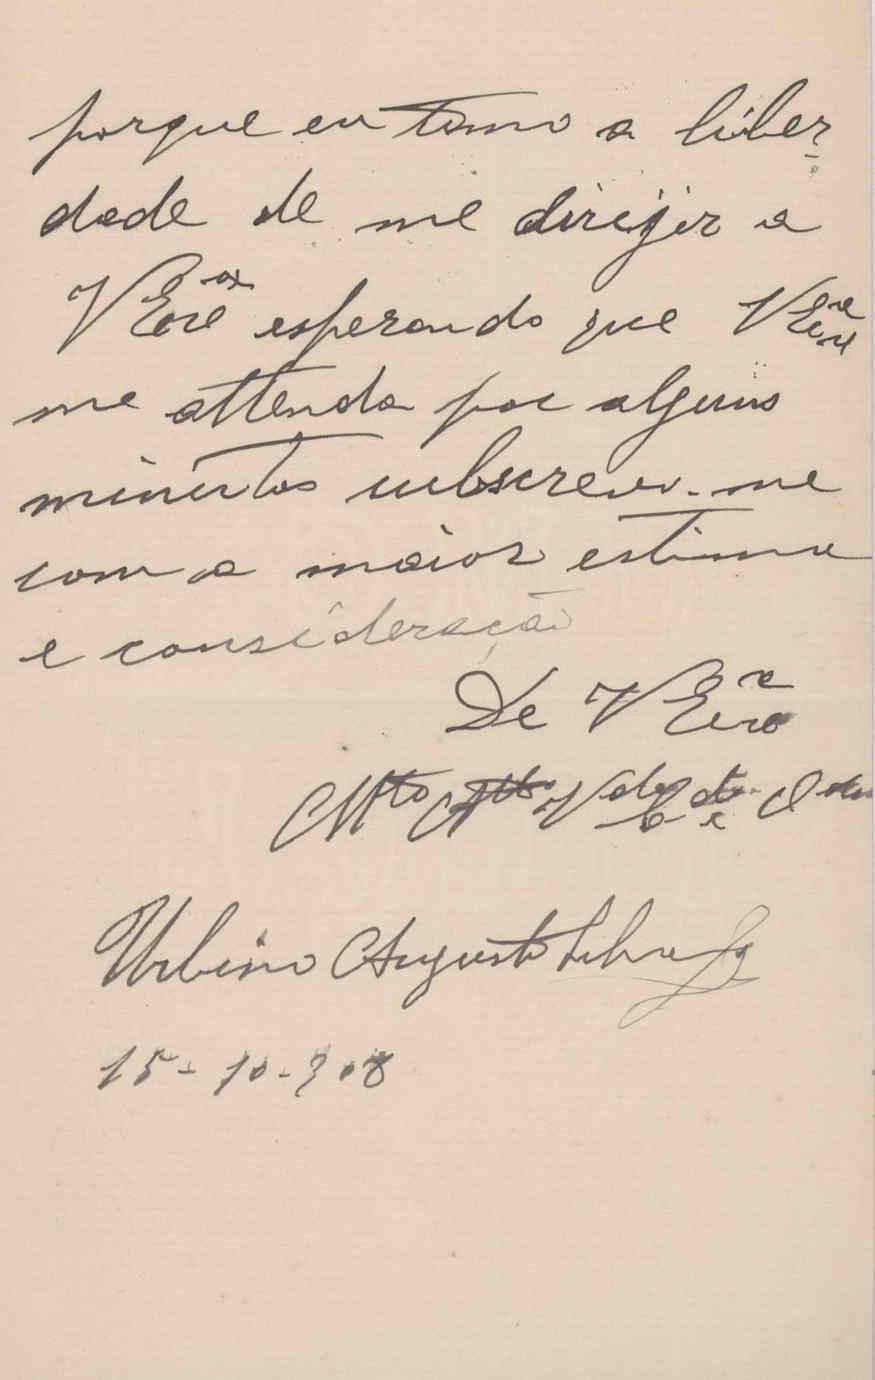 porque eu tomo a liber-
dade de me dirijir a
V Exc.ª esperando que V Exc.ª
me attenda por alguns
minutos subscrevo-me
com a maior estima
e consideração
De V Exc.ª
Mto Atto V.dor e
Urbino Augusto Silva
15-10-908